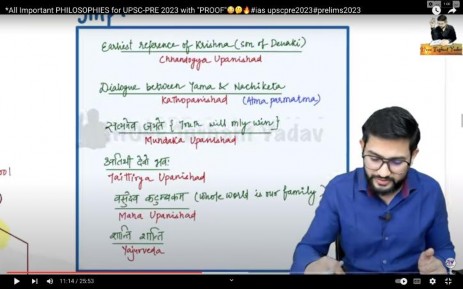 *All Important PHILOSOPHIES for UPSC-PRE 2023 with "PROOF"😳🤔🔥#ias upscpre2023#prelims2023
Earliest reference of Krishna (son of Devaki)
Chandogya Upanishad
Dialogue between Yama & Nachiketa
Kathopanishad (Atma parmatma)
सत्यमेव जयते { Truth will only win }
Mundaka Upanishad
अतिथी देवो भवः
Taittirya Upanishad
वसुधैव कुटुम्बकम (Whole world is our family
Maha Upanishad
शान्ति शान्ति
Yajurveda
11:14 / 25:53